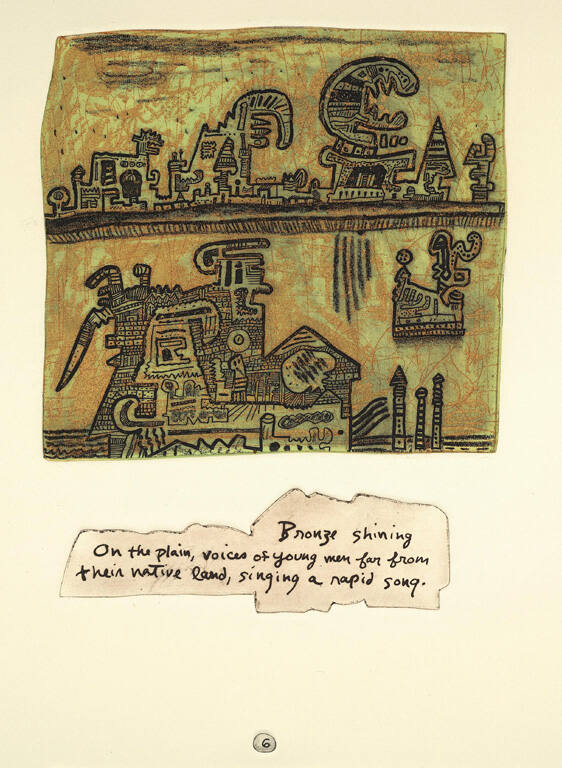 Bronze shining
On the plain, voices of young men far from
their native land, singing a rapid song.
6